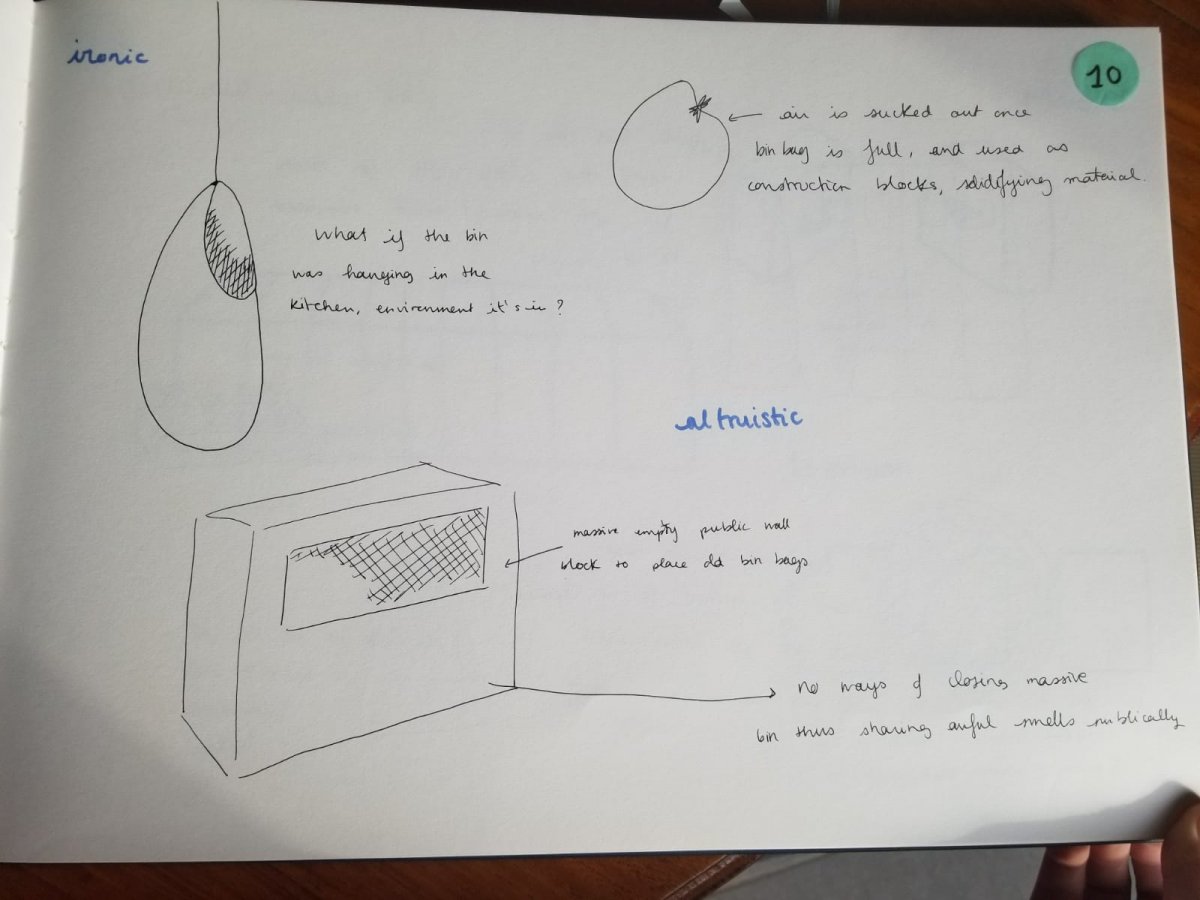 ironic
10
air is sucked out once
bin bag is full, and used as
construction blocks, solidifying material.
what if the bin
was hanging in the
kitchen, environment it's in?
altruistic
massive empty public wall
block to place old bin bags
no ways of closing massive
bin thus sharing awful smells publically